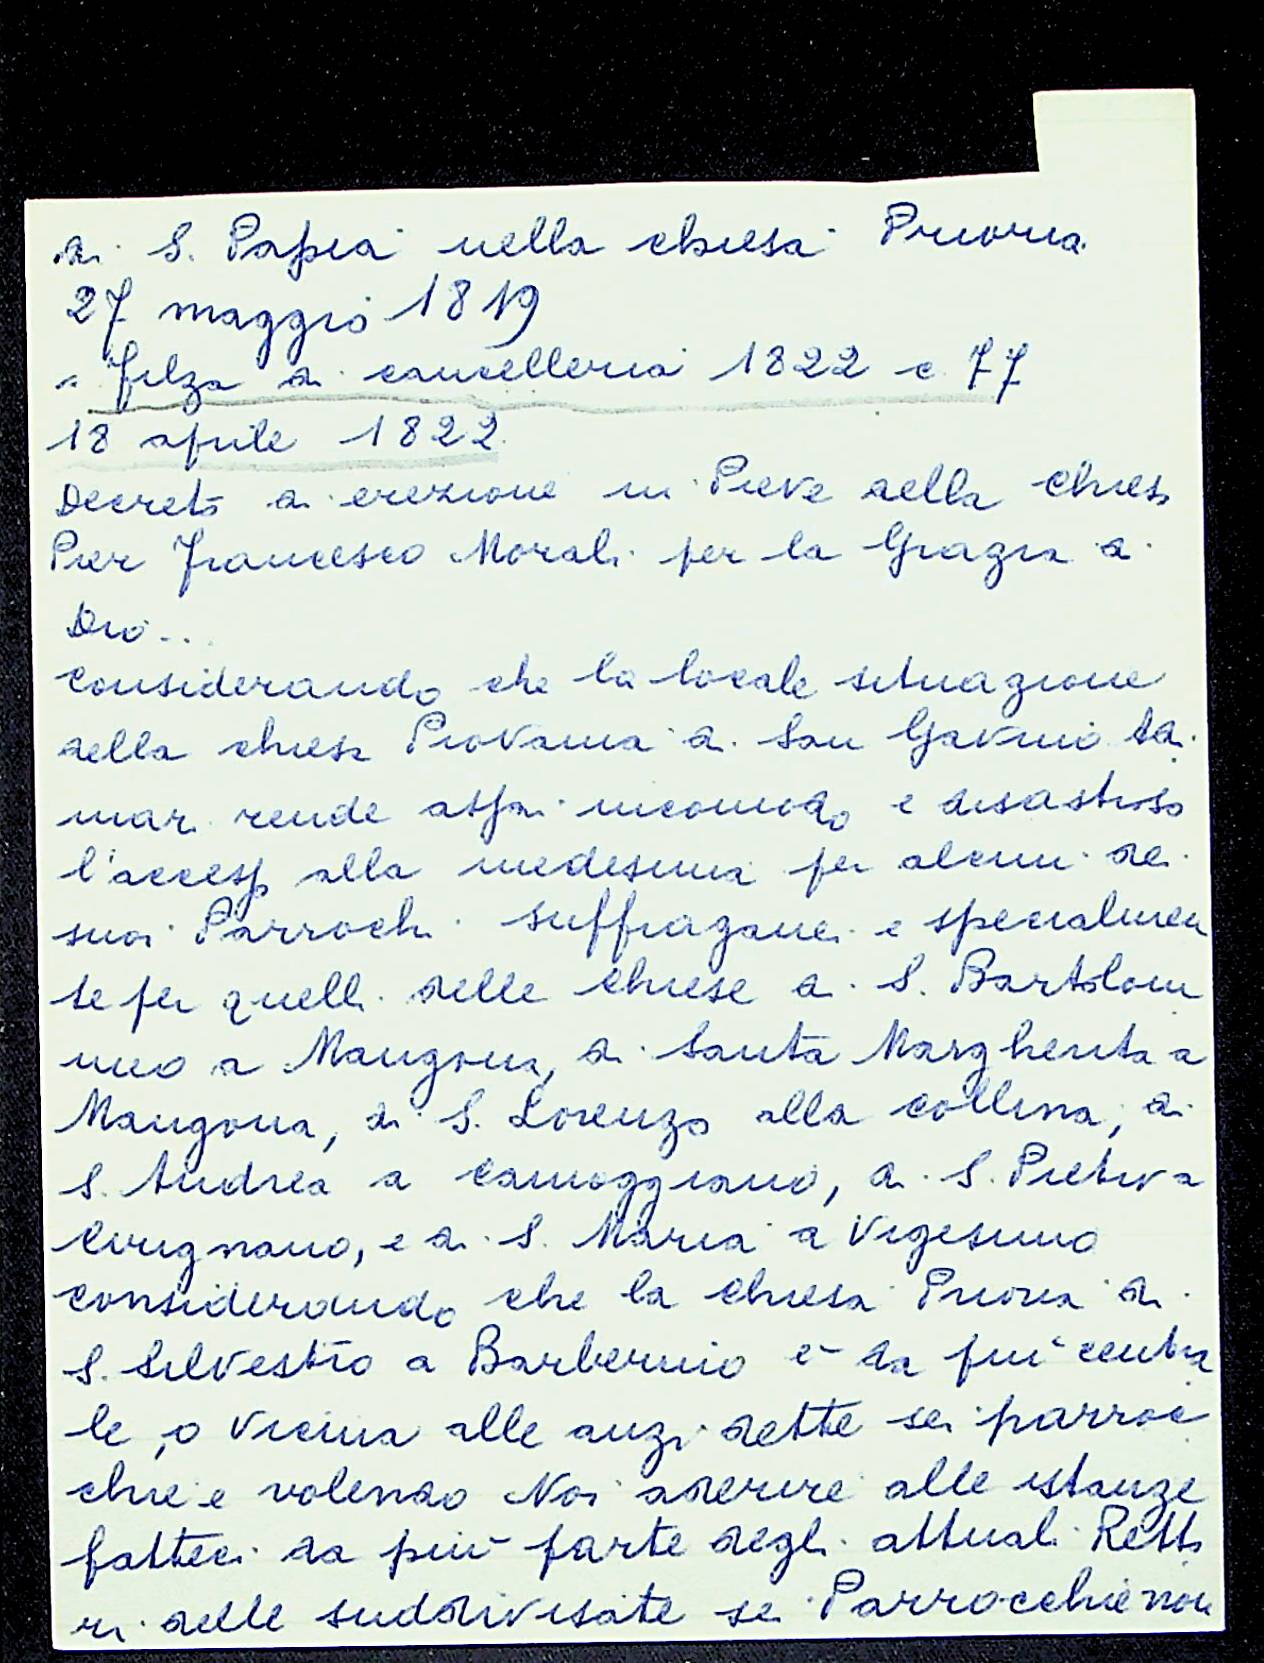 di S. Papia nella chiesa Prioria
27 maggio 1819
" Filza di cancelleria 1822 c 77
18 aprile 1822.
Decreto di erezione in Pieve della Chiesa
Pier Francesco Morali per la Grazia di
Dio...
Considerando che la locale situazione
della chiesa Piovania di San Gavino Adi
mari rende assai incomodo e disastroso
l'accesso alla medesima per alcuni dei
suoi Parrochi suffraganei e specialmen
te per quelli delle chiese di S. Bartolom
meo a Mangona, di Santa Margherita a
Mangona, di S. Lorenzo alla Collina, di
S. Andrea a Camoggiano, di S. Pietro a
Cirignano, e di S. Maria a Vigesimo
considerando che la chiesa Prioria di
S. Silvestro a Barberino è la più centra
le, o vicina alle anzi dette sei parroc
chie e volendo Noi aderire alle istanze
fatteci da più parte degli attuali Retto
ri delle suddivisate sei Parrocchie non